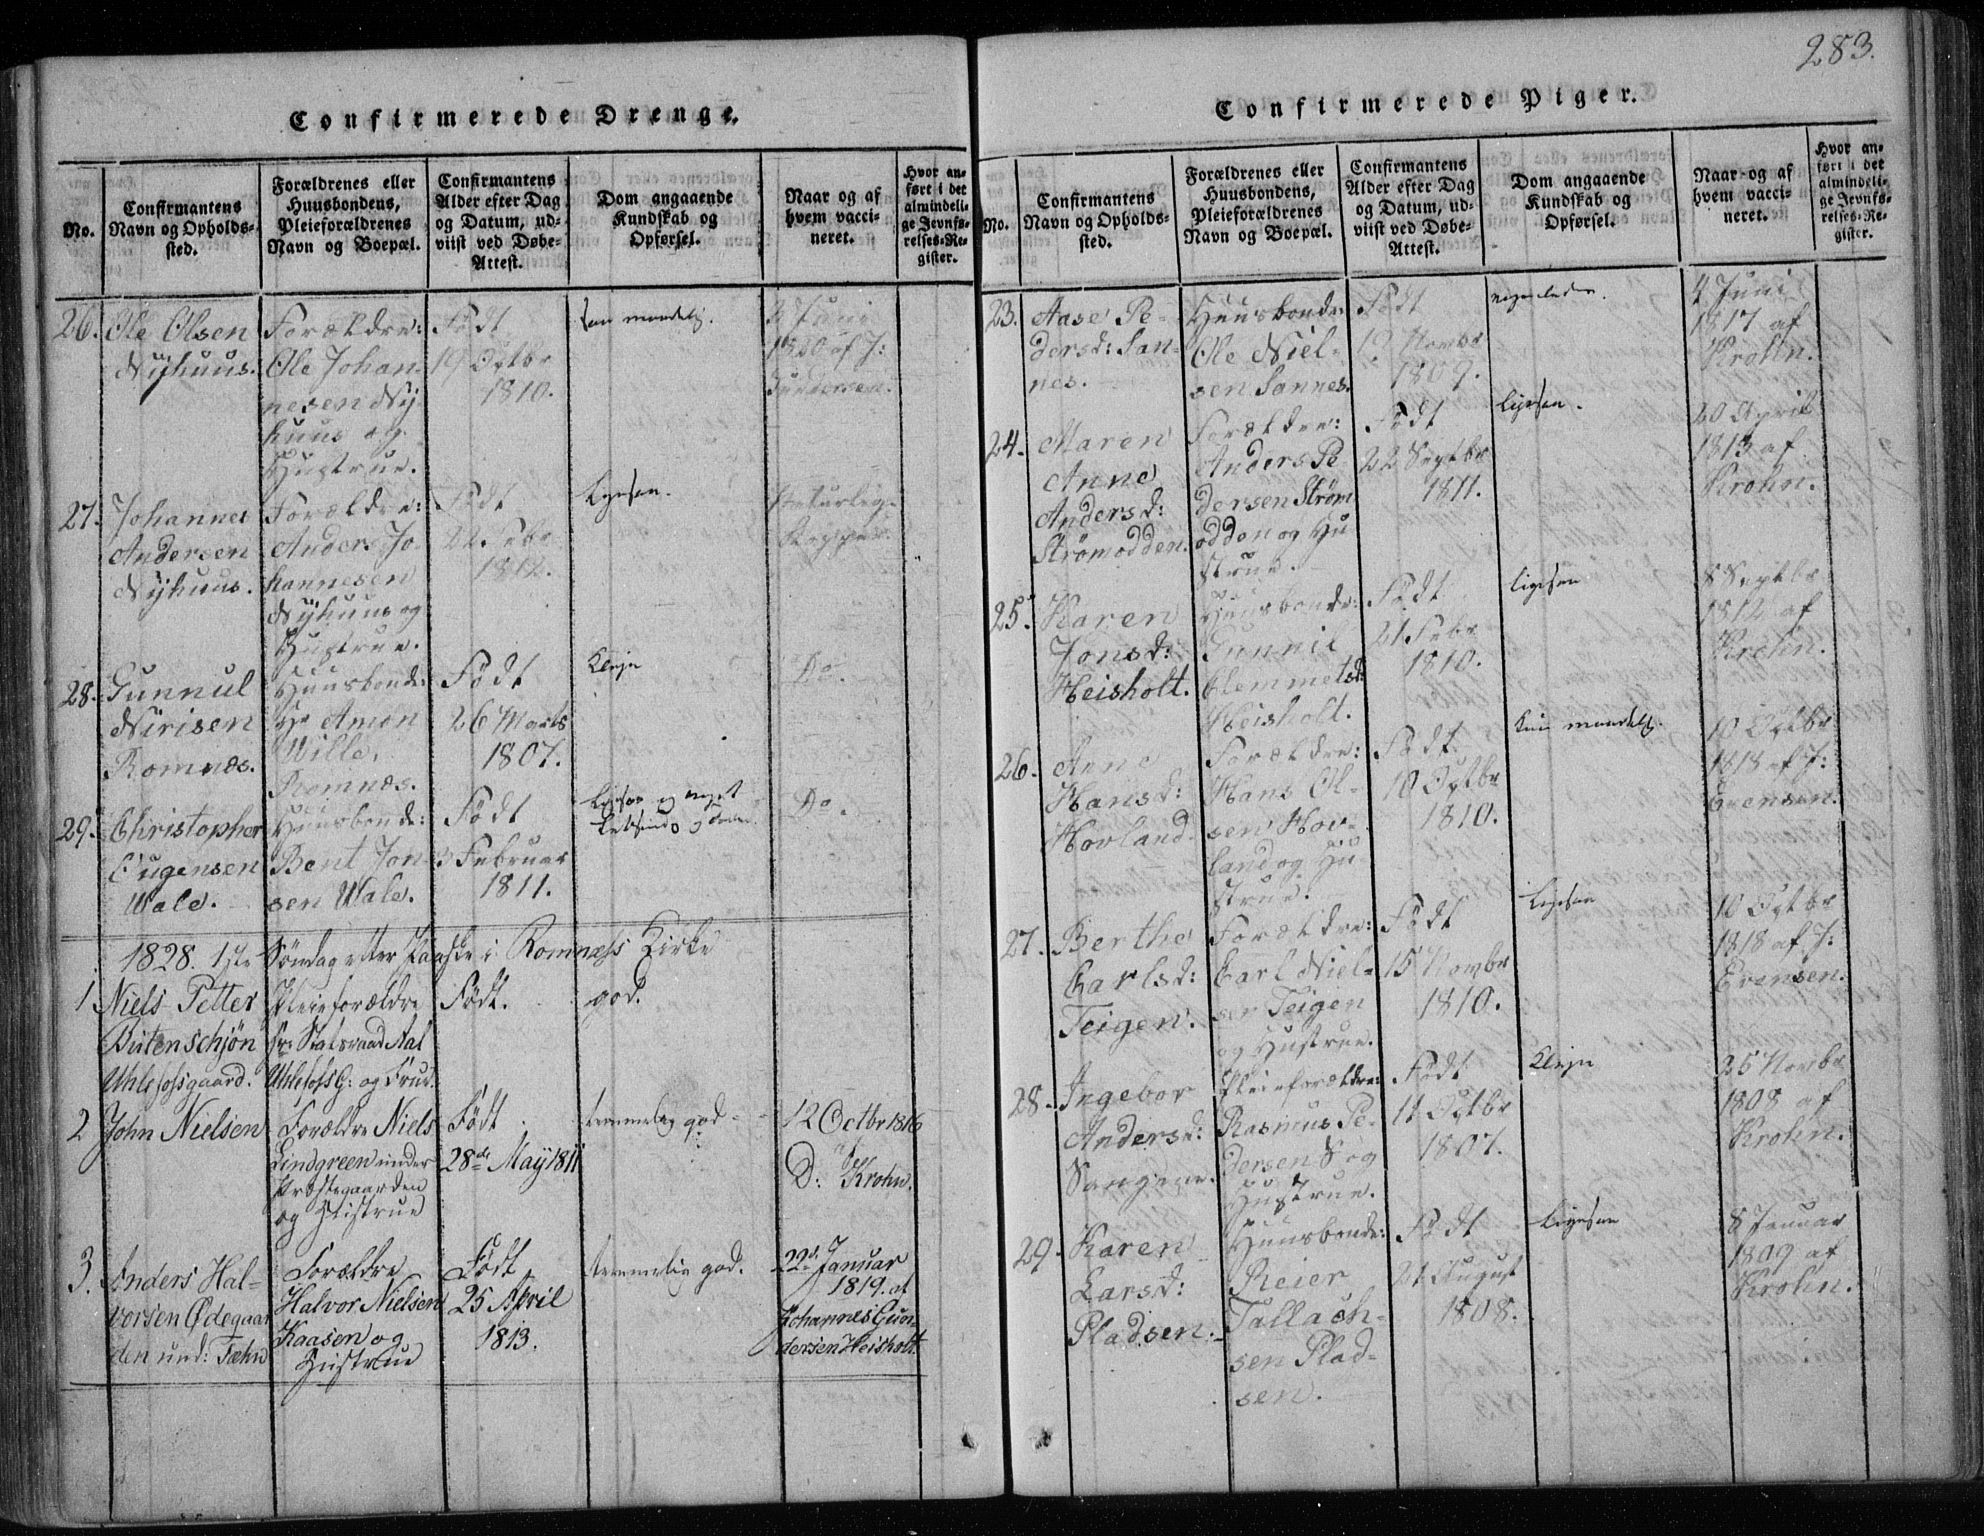 283.
Confirmerede Drenge.
No.
Confirmantens
Navn og Opholds-
sted.
Forældrenes eller
Huusbondens,
Pleieforældrenes
Navn og Boepæl.
Confirmantens
Alder efter Dag
og Datum, ud-
viist ved Døbe-
Attest.
Dom angaaende
Kundskab og
Opførsel.
Naar og af
hvem vacci-
neret.
Hvor an-
ført i det
almindeli-
ge Jevnfø-
relses-Re-
gister.
26.
Ole Olsen
Nyhuus.
Forældre:
Ole Johan-
nesen Ny-
huus og
Hustrue.
Født
19 Octbr
1810.
maadelig.
2 Juni
1820 af J:
Gundersen.
27.
Johannes
Andersen
Nyhuus.
Forældre:
Anders Jo-
hannesen
Nyhuus og
Hustrue.
Født
22 Febr
1812.
Ligesaa.
Naturlige
Kopper.
28.
Gunnul
Nirisen
Romnæs.
Huusbonde:
Hr Amon
Wille,
Romnæs.
Født
26 Marts
1807.
Do.
29.
Christopher
Eugensen
Wale.
Huusbonde:
Bent Jon-
sen Wale.
Født
3 Februar
1811.
Ligesaa og noget
Do.
1828. 1ste Søndag etter Paaske i Romnæss Kirke
1
Niels Petter
Butenschjön
Uhlefossgaard.
Pleieforældre
Hr Statsraad Aal
Uhlefoss G: og Frue.
Født.
god.
2
John Nielsen
Forældre Niels
Lindgreen under
Præstegaarden
og Hustrue
Født
28de Maÿ 1811
temmelig god
12 Octbr 1816
af
D: Krohn.
3.
Anders Hal-
vorsen Ødegaar
den und: Fæhn
Forældre
Halvor Nielsen
Kaasen og
Hustrue
Født
25 April
1813.
temmelig god.
22d Januar
1819. af
Johannes Gun-
dersen Heisholt.
Confirmerede Piger.
No.
Confirmantens
Navn og Opholds-
sted.
Forældrenes eller
Huusbondens,
Pleieforældrenes
Navn og Boepæl.
Confirmantens
Alder efter Dag
og Datum, ud-
viist ved Døbe-
Attest.
Dom angaaende
Kundskab og
Opførsel.
Naar og af
hvem vacci-
neret.
Hvor an-
ført i det
almindeli-
ge Jevnfø-
relses-Re-
gister.
23.
Aase Pe-
dersd: San-
nes.
Huusbonde
Ole Niel-
sen Sannes.
Født
12 Novbr
1809.
4 Juni
1817 af
Krohn.
24.
Maren
Anne
Andersd:
Strømodden.
Forældre:
Anders Pe-
dersen Strøm
odden og Hu
strue.
Født
22 Septbr
1811.
Ligesaa.
20 April
1813 af
Krohn.
25.
Karen
Jonsd:
Heisholt.
Huusbonde:
Gunnil
Clemmetsd:
Heisholt.
Født
21 Febr
1810.
Ligesaa
8 Septbr
1812 af
Krohn.
26.
Anne
Hansd:
Hovland
Forældre:
Hans Ol-
sen Hov-
land og Hu-
strue.
Født
10 Octbr
1810.
Kun maadelig.
10 Octbr
1818 af J:
Evensen.
27.
Berthe
Carlsd:
Teigen.
Forældre:
Carl Niel-
sen Teigen
og Hustrue.
Født
15 Novbr
1810.
Ligesaa
10 Octbr
1818 af J:
Evensen.
28.
Ingebor
Andersd:
Pleieforældre:
Rasmus Pe-
dersen S og
Hustrue.
Født
11 Octbr
1807.
25 Novbr
1808 af
Krohn.
29.
Karen
Larsd:
Pladsen.
Huusbonde:
Reier
Tallach-
sen Plad-
sen.
Født
21 August
1808.
Ligesaa
8 Januar
1809 af
Krohn.